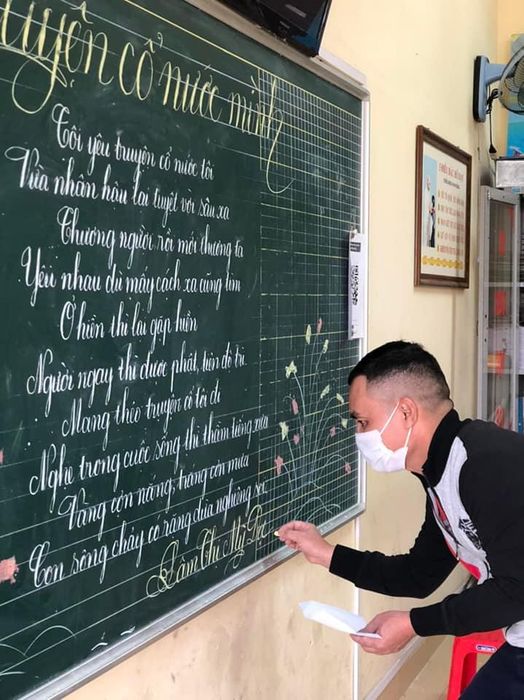 Truyện cổ nước mình
Tôi yêu truyện cổ nước tôi
Vừa nhân hậu lại tuyệt vời sâu xa
Thương người rồi mới thương ta
Yêu nhau dù mấy cách xa cũng tìm
Ở hiền thì lại gặp hiền
Người ngay thì được phật, tiên độ trì
Mang theo truyện cổ tôi đi
Nghe trong cuộc sống thì thầm tiếng xưa
Vàng cơn nắng, trắng cơn mưa
Con sông chảy có rặng dừa nghiêng soi
Lâm Thị Mỹ Dạ